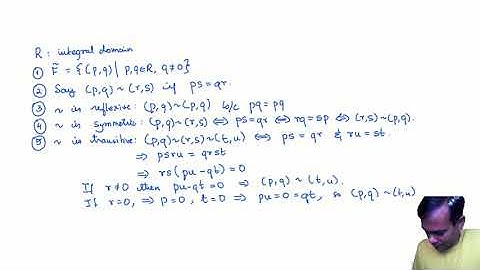 R : integral domain
① F̃ = {(p,q) | p,q∈R, q≠0}
② Say (p,q) ~ (r,s) if ps = qr.
③ ~ is reflexive: (p,q)~(p,q) b/c pq = pq
④ ~ is symmetric: (p,q)~(r,s) ⟺ ps=qr ⟺ rq = sp ⟺ (r,s)~(p,q).
⑤ ~ is transitive: (p,q)~(r,s)~(t,u) ⟺ ps = qr & ru = st.
⇒ psru = qrst
⇒ rs(pu-qt) = 0
If r≠0 then pu-qt=0 ⇒ (p,q) ~ (t,u).
If r=0, ⇒ p=0, t=0 ⇒ pu=0=qt, so (p,q) ~ (t,u)